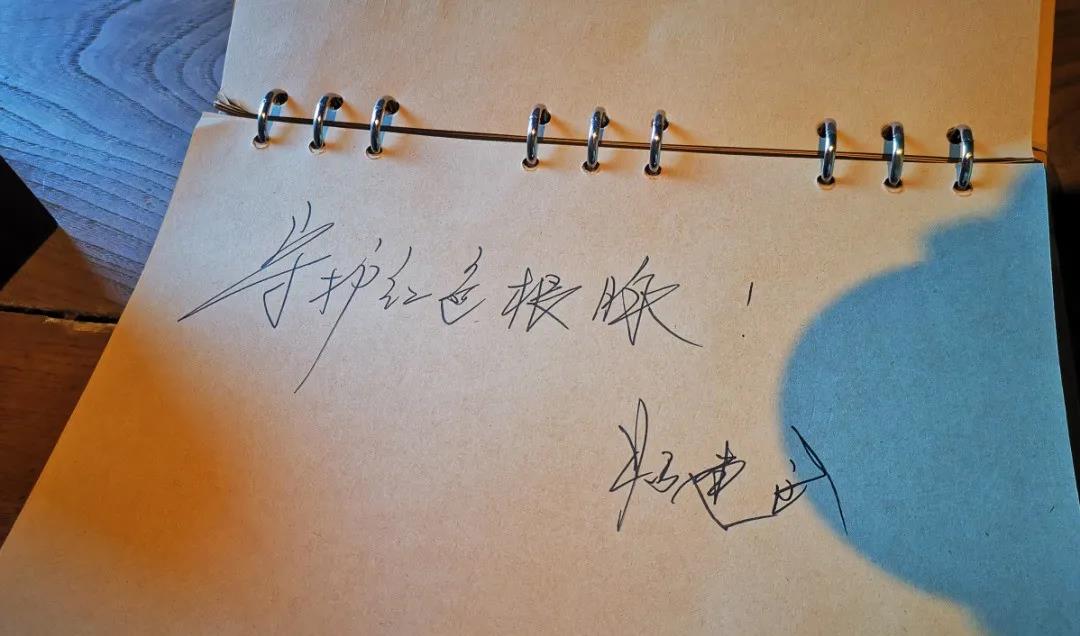 守护红色根脉！
杨建武